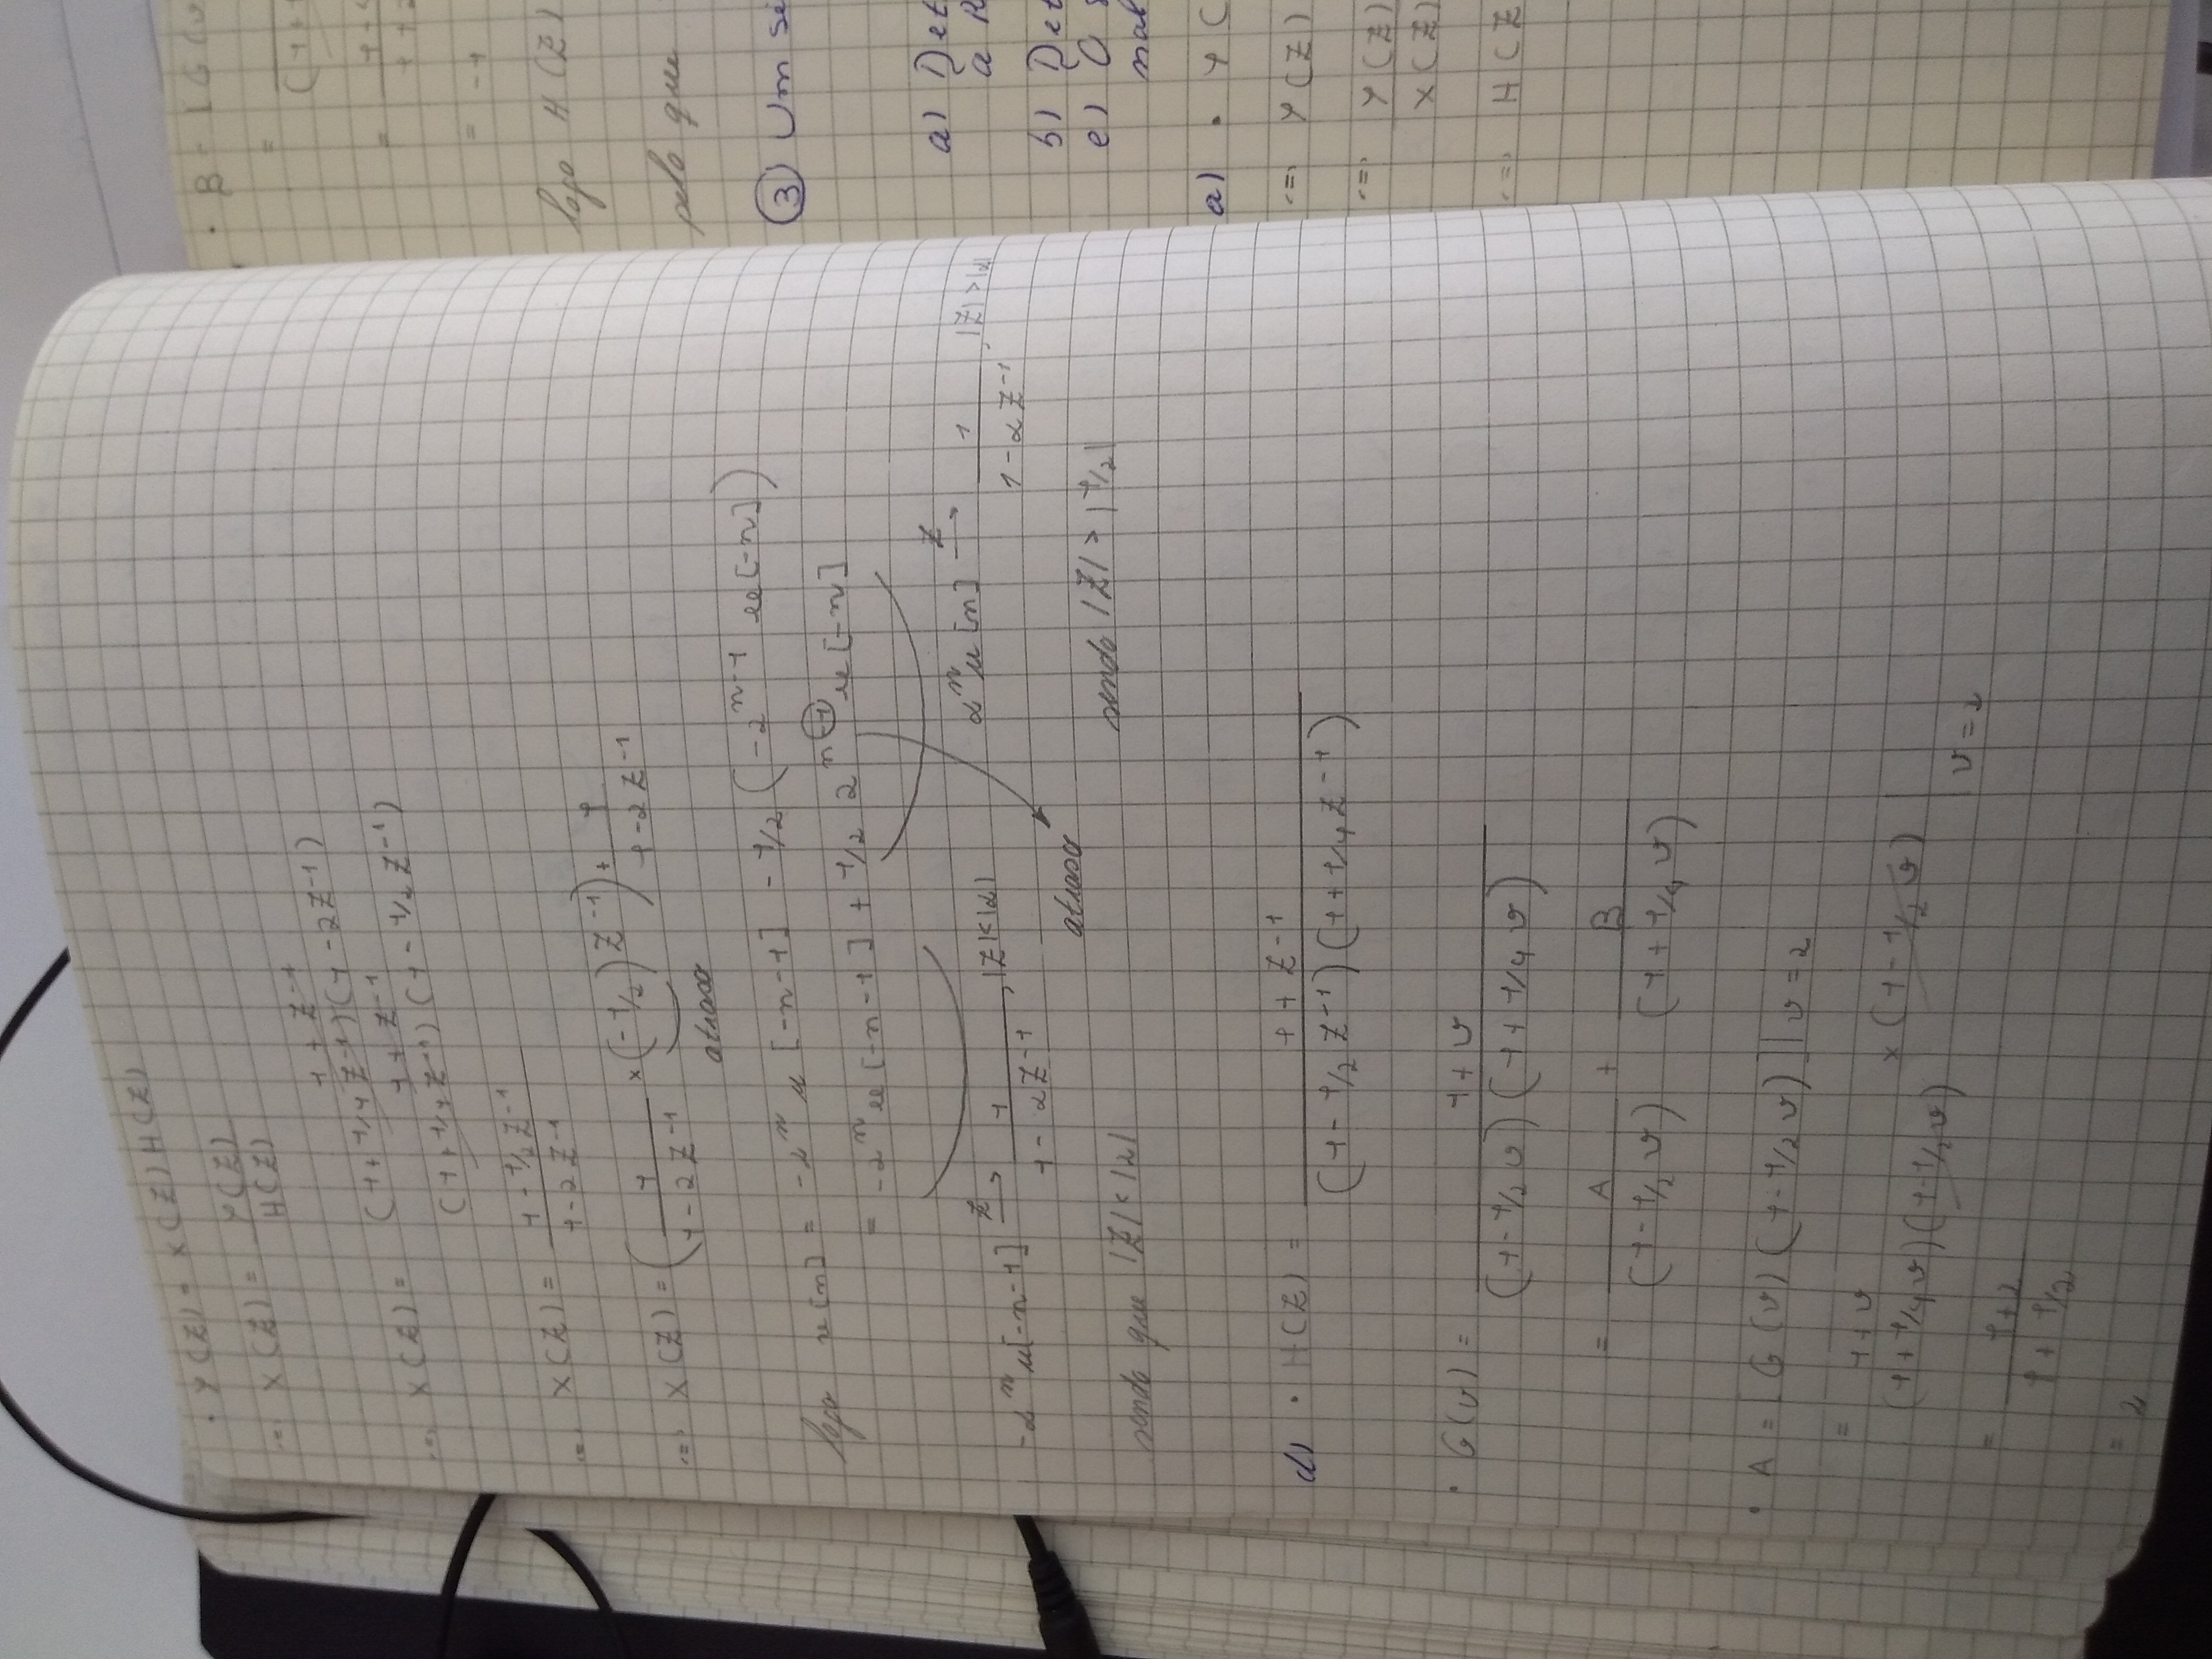 · Y(Z) = X(Z) H(Z)
<=> X(Z) = Y(Z) / H(Z)
<=> X(Z) = (1 + Z^-1) / ((1 + 1/4 Z^-1)(1 - 2Z^-1)) / (1 + Z^-1) / ((1 + 1/4 Z^-1)(1 - 1/2 Z^-1))
<=> X(Z) = (1 - 1/2 Z^-1) / (1 - 2Z^-1)
<=> X(Z) = (1 / (1 - 2Z^-1) × (-1/2) Z^-1) + 1 / (1 - 2Z^-1)
atraso
logo x[n] = -2^n u[-n-1] - 1/2 (-2^(n-1) u[-n])
= -2^n u[-n-1] + 1/2 2^(n-1) u[-n]
-α^n u[-n-1] Z→ 1 / (1 - αZ^-1), |Z|<|α|
α^n u[n] Z→ 1 / (1 - αZ^-1), |Z|>|α|
atraso
sendo que |Z|<|2|
sendo |Z|>|1/2|
d) · H(Z) = (1 + Z^-1) / ((1 - 1/2 Z^-1)(1 + 1/4 Z^-1))
· G(v) = (1 + v) / ((1 - 1/2 v)(1 + 1/4 v))
= A / (1 - 1/2 v) + B / (1 + 1/4 v)
· A = [G(v) (1 - 1/2 v)]|v=2
= (1 + v) / ((1 + 1/4 v)(1 - 1/2 v)) × (1 - 1/2 v) |v=2
= (1 + 2) / (1 + 1/2)
= 2
· B = [G(v
=
(1+
=
= -1
logo H(Z)
pelo que
③ Um si
a) Det
a R
b) Det
c) O s
mal
a) · Y(
<=> Y(Z)
<=> Y(Z) / X(Z)
<=> H(Z